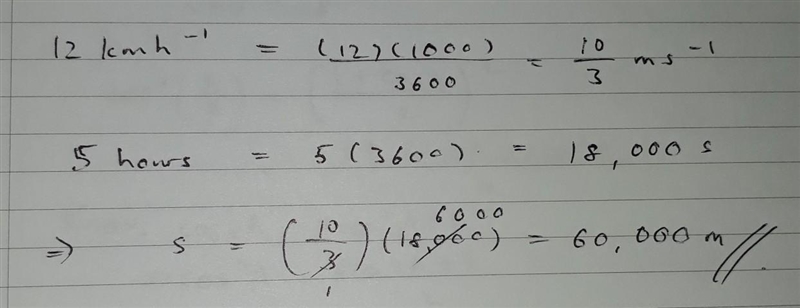 12 kmh⁻¹ = (12)(1000)/3600 = 10/3 ms⁻¹
5 hours = 5(3600) = 18,000 s
⇒ s = (10/3)(18,000) = 60,000 m //
6000
1